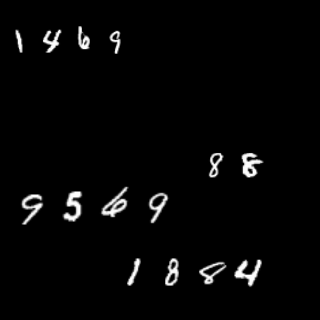 1469
88
9569
1884